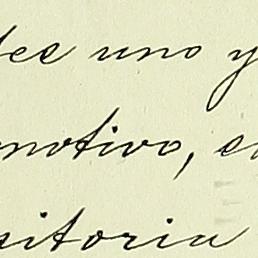 des uno y
motivo, e
sitoria